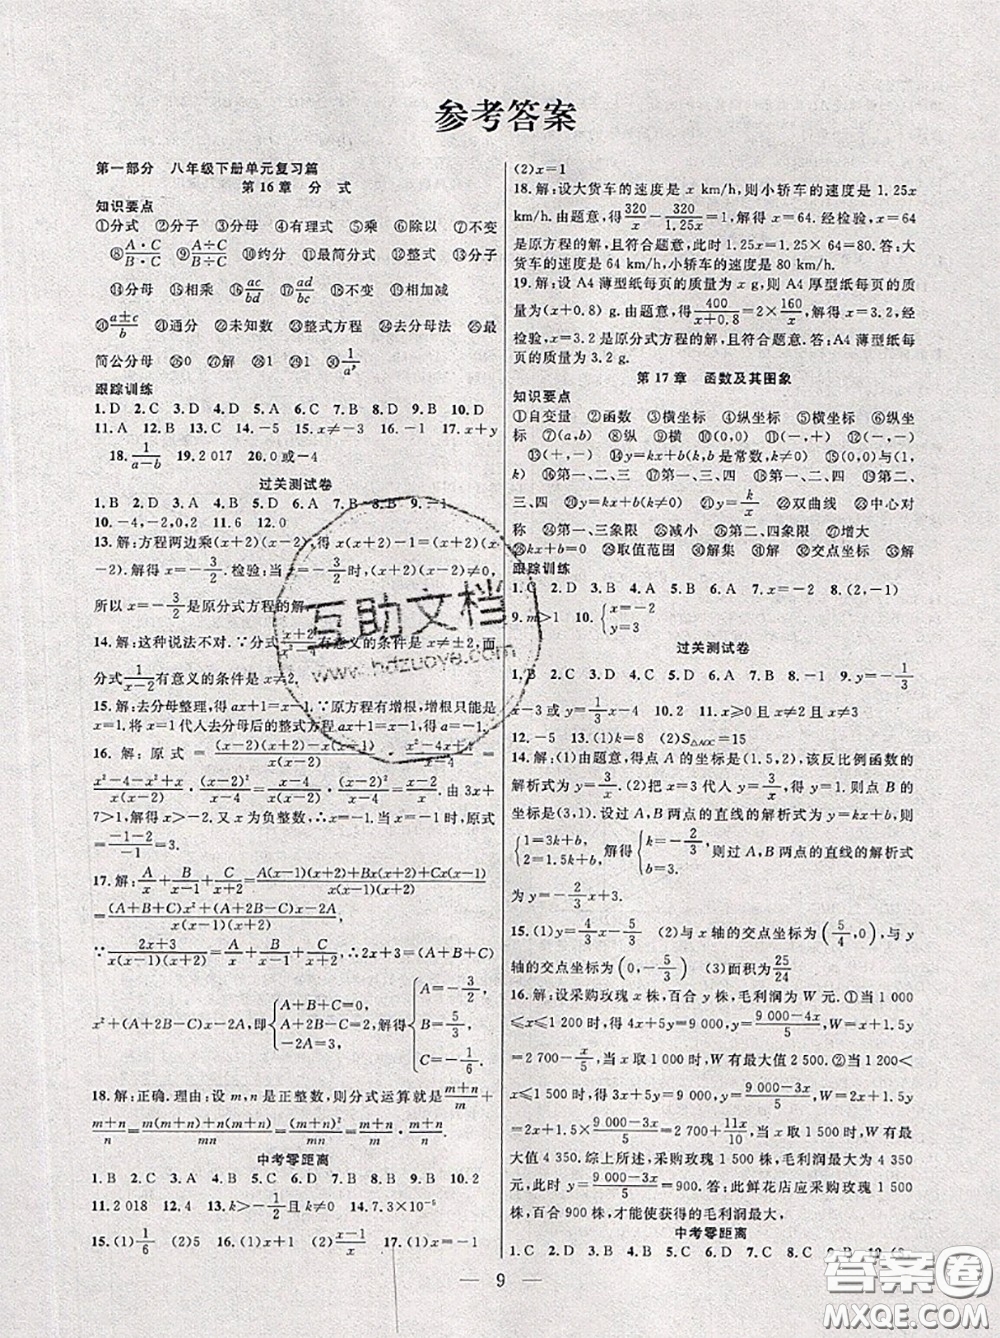 参考答案
第一部分 八年级下册单元复习篇
第16章 分 式
知识要点
①分式 ②分子 ③分母 ④有理式 ⑤乘 ⑥除以 ⑦不变
⑧A·C/B·C ⑨A÷C/B÷C ⑩约分 ⑪最简分式 ⑫整式 ⑬分子
⑭分母 ⑮相乘 ⑯ac/bd ⑰ad/bc ⑱不变 ⑲相加减
⑳a±c/b ㉑通分 ㉒未知数 ㉓整式方程 ㉔去分母法 ㉕最
简公分母 ㉖0 ㉗解 ㉘1 ㉙1 ㉚1/aⁿ
跟踪训练
1.D 2.C 3.D 4.D 5.D 6.C 7.D 8.C 9.D 10.D
11.A 12.B 13.C 14.-5 15.x≠-3 16.-1 17.x+y
18.1/(a-b) 19.2 017 20.0或-4
过关测试卷
1.B 2.D 3.C 4.B 5.D 6.A 7.B 8.B 9.-1
10.-4,-2,0,2 11.6 12.0
13.解:方程两边乘(x+2)(x-2),得 x(x+2)-1=(x+2)(x-
2).解得 x=-3/2.检验:当 x=-3/2时,(x+2)(x-2)≠0,
所以 x=-3/2是原分式方程的解.
14.解:这种说法不对.∵分式(x+2)/(x²-4)有意义的条件是 x≠±2,而
分式1/(x-2)有意义的条件是 x≠2.
15.解:去分母整理,得 ax+1=x-1.∵原方程有增根,增根只能是
x=1,将 x=1代人去分母后的整式方程 ax+1=x-1,得 a=-1.
16.解:原式=[(x-2)(x+2)-x(x-1)]/[x(x-2)]·(x²-4x+4)/(x-4)=
(x²-4-x²+x)/[x(x-2)]·(x-2)²/(x-4)=(x-4)/[x(x-2)]·(x-2)²/(x-4)=(x-2)/x.由3x+
7>1,解得 x>-2.又 x为负整数,∴x=-1.当 x=-1时,原式
=(-1-2)/(-1)=3.
17.解:A/x+B/(x-1)+C/(x+2)=[A(x-1)(x+2)+Bx(x+2)+Cx(x-1)]/[x(x-1)(x+2)]
=[(A+B+C)x²+(A+2B-C)x-2A]/[x(x-1)(x+2)]
∵(2x+3)/[x(x-1)(x+2)]=A/x+B/(x-1)+C/(x+2),∴2x+3=(A+B+C)
x²+(A+2B-C)x-2A,即{A+B+C=0, A+2B-C=2, -2A=3, 解得{A=-3/2, B=5/3, C=-1/6.
18.解:正确.理由:设 m,n是正整数,则分式运算就是(m+n)/m+
(m+n)/n=[m(m+n)+n(m+n)]/mn=(m+n)²/mn=(m+n)/m·(m+n)/n.
中考零距离
1.B 2.C 3.A 4.B 5.C 6.D 7.D 8.B 9.B 10.2
11.2 018 12.4 13.k>-1/2且 k≠0 14.7.3×10⁻⁵
15.(1)1/6 (2)5 16.(1)x+1 (2)-1/3 17.(1)x=-1
(2)x=1
18.解:设大货车的速度是 x km/h,则小轿车的速度是 1.25x
km/h.由题意,得320/x-320/1.25x=1,解得 x=64.经检验,x=64
是原方程的解,且符合题意,此时 1.25x=1.25×64=80.答:大
货车的速度是 64 km/h,小轿车的速度是 80 km/h.
19.解:设A4薄型纸每页的质量为 x g,则A4厚型纸每页的质量
为(x+0.8) g.由题意,得400/(x+0.8)=2×160/x.解得 x=3.2,经检
验,x=3.2是原分式方程的解,且符合题意.答:A4薄型纸每
页的质量为 3.2 g.
第17章 函数及其图象
知识要点
①自变量 ②函数 ③横坐标 ④纵坐标 ⑤横坐标 ⑥纵坐
标 ⑦(a,b) ⑧纵 ⑨(0,0) ⑩(+,+) ⑪(-,+) ⑫(-,-)
⑬(+,-) ⑭y=kx+b(k,b是常数,k≠0) ⑮(0,0) (1,
k) ⑯第一、二、三 ⑰第一、三、四 ⑱第一、二、四 ⑲第二、
三、四 ⑳y=kx+b(k≠0) ㉑y=k/x ㉒双曲线 ㉓中心对
称 ㉔第一、三象限 ㉕减小 ㉖第二、四象限 ㉗增大
㉘kx+b=0 ㉙取值范围 ㉚解集 ㉛解 ㉜交点坐标 ㉝解
跟踪训练
1.C 2.D 3.B 4.A 5.A 6.A 7.x=-2 8.(2,-1)
9.m>1 10.{x=-2 y=3
过关测试卷
1.B 2.C 3.C 4.B 5.C 6.D 7.A 8.D 9.y=-1/3
x-3或 y=1/3x-4 10.2 11.x≥0且 x≠2且 x≠3
12.-5 13.(1)k=8 (2)S△AOC=15
14.解:(1)由题意,得点 A的坐标是(1.5,2),该反比例函数的
解析式为 y=3/x.(2)把 x=3代人 y=3/x,得 y=1.则点 B的
坐标是(3,1).设过 A,B两点的直线的解析式为 y=kx+b,则
{1=3k+b, 2=1.5k+b, 解得{k=-2/3, b=3, 则过 A,B两点的直线的解析式
为 y=-2/3x+3.
15.(1)y=4/3x-5/3 (2)与 x 轴的交点坐标为(5/4,0),与 y
轴的交点坐标为(0,-5/3) (3)面积为25/24
16.解:设采购玫瑰 x株,百合 y株,毛利润为 W元.①当 1 000
≤x≤1 200时,得 4x+5y=9 000,y=(9 000-4x)/5,W=x+1.5y
=2 700-x/5,当 x取 1 000时,W有最大值 2 500.②当 1 200<
x≤1 500时,得 3x+5y=9 000,y=(9 000-3x)/5,W=2x+1.5y
=2x+1.5×(9 000-3x)/5=2 700+11x/10,当 x=1 500时,W有
最大值 4 350.综上所述,采购玫瑰 1 500株,毛利润最大为 4 350
元,此时 y=(9 000-3x)/5=900.答:此鲜花店应采购玫瑰
1 500株,百合 900株,才能使获得的毛利润最大.
中考零距离
1.C 2.D 3.C 4.A 5.C 6.D 7.C 8.C 9.B
9
互助文档
www.hdzuoye.com
答案圈
MXQE.COM